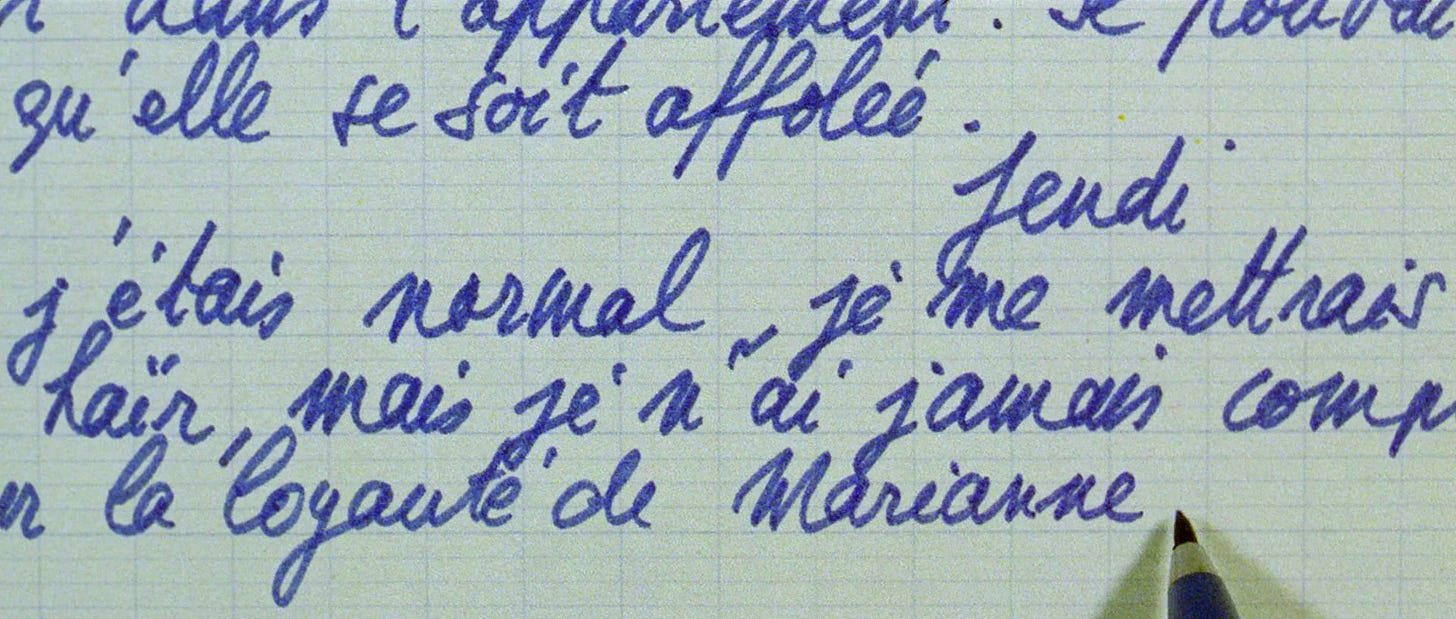 dans l'appartement. Je pouvai
qu'elle se soit affolée.
Jeudi
j'étais normal, je me mettrais
haïr, mais je n'ai jamais comp
r la loyauté de Marianne